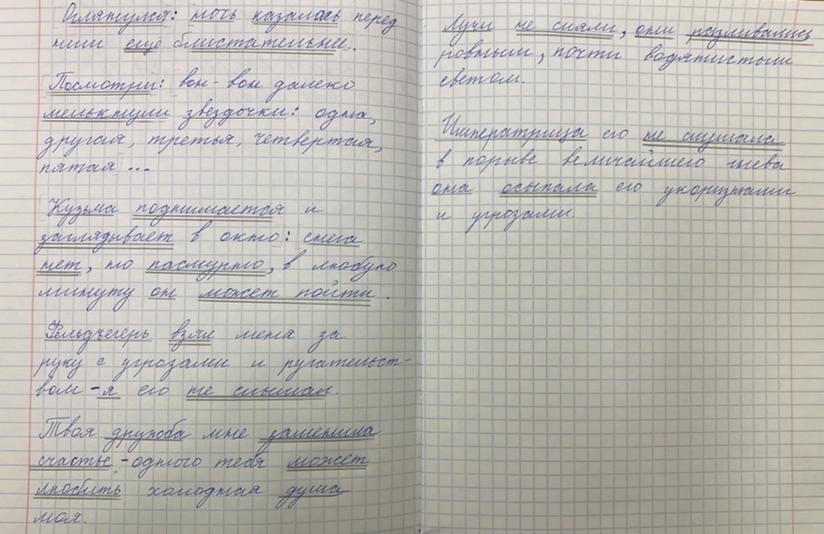 Оглянулся: ночь казалась перед
ним ещё блистательнее.
Посмотри: вон-вон далеко
мелькнули звездочки: одна,
другая, третья, четвертая,
пятая ...
Кузьма поднимается и
заглядывает в окно: снега
нет, но пасмурно, в любую
минуту он может пойти.
Фельдъегерь взял меня за
руку с угрозами и ругательст-
вом - я его не слышал.
Твоя дружба мне заменила
счастье - одного тебя может
любить холодная душа
моя.
Лучи не сияли, они разливались
ровным, почти водянистым
светом.
Императрица его не слушала
в порыве величайшего гнева
она осыпала его укоризнами
и угрозами.